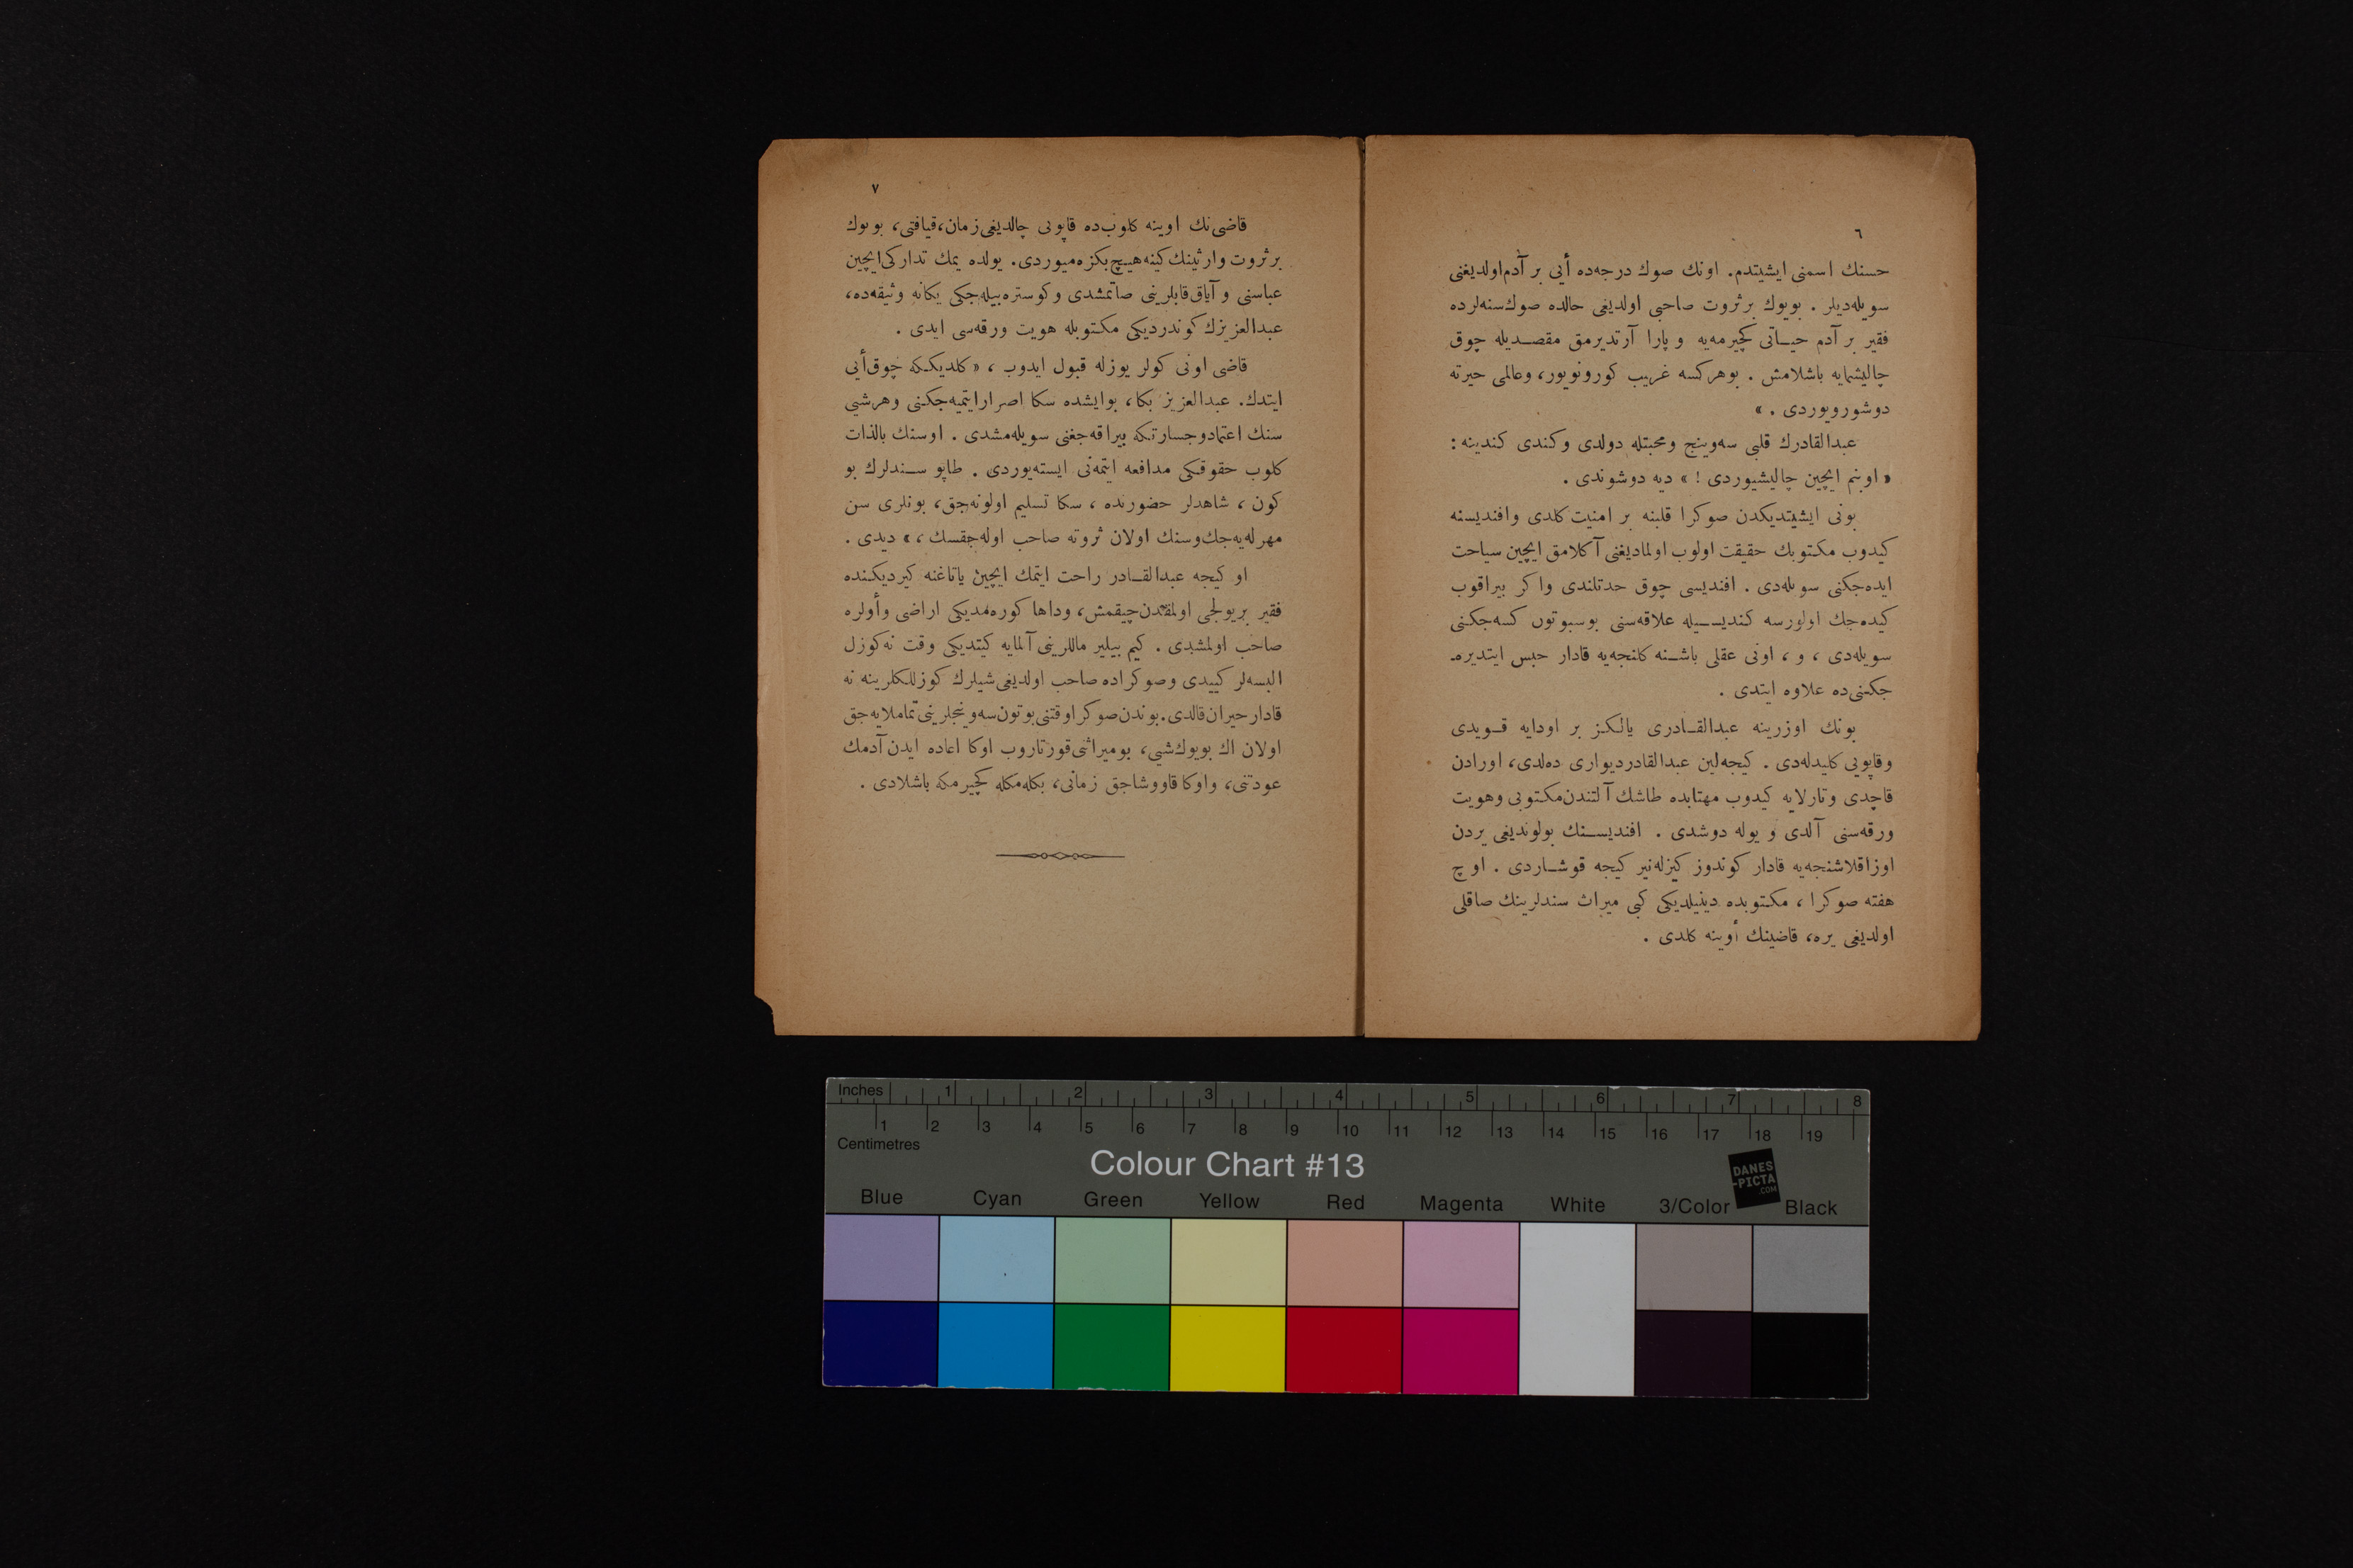 ٦
حسنك اسمنی ایشیتدم. اونك صوك درجه‌ده أیی بر آدم اولدیغنی
سویله‌دیلر . بویوك بر ثروت صاحبی اولدیغی حالده صوك سنه‌لرده
فقیر بر آدم حیـاتی كچیرمه‌یه و پارا آرتدیرمق مقصـدیله چوق
چالیشمایه باشلامش . بو هركسه غریب كورونویور، وعالمی حیرته
دوشورویوردی . »
عبدالقادرك قلبی سه‌وینج ومحبتله دولدی وكندی كندینه :
« اوبنم ایچین چالیشیوردی ! » دیه دوشوندی .
بونی ایشیتدیكدن صوكرا قلبنه بر امنیت كلدی وافندیسنه
كیدوب مكتوبك حقیقت اولوب اولمادیغنی آكلامق ایچین سیاحت
ایده‌جكنی سویله‌دی . افندیسی چوق حدتلندی واكر بیراقوب
كیده‌جك اولورسه كندیسـیله علاقه‌سنی بوسبوتون كسه‌جكنی
سویله‌دی ، و ، اونی عقلی باشـنه كلنجه‌یه قادار حبس ایتدیره‌ـ
جكنی‌ده علاوه ایتدی .
بونك اوزرینه عبدالقـادری یالكز بر اودایه قـویدی
وقاپویی كلیدله‌دی . كیجه‌لین عبدالقادر دیواری ده‌لدی، اورادن
قاچدی وتارلایه كیدوب مهتابده طاشك آلتندن مكتوبی وهویت
ورقه‌سنی آلدی و یوله دوشدی . افندیسـنك بولوندیغی یردن
اوزاقلاشنجه‌یه قادار كوندوز كیزله‌نیر كیجه قوشـاردی . اوچ
هفته صوكرا ، مكتوبده دینیلدیكی كبی میراث سندلرینك صاقلی
اولدیغی یره، قاضینك أوینه كلدی .
٧
قاضی‌نك اوینه كلوب‌ده قاپویی چالدیغی زمان، قیافتی، بویوك
بر ثروت وارثینك‌كینه هیـچ بكزه‌میوردی. یولده یمك تداركی ایچین
عباسنی و آیاق قابلرینی صاتمشدی وكوستره‌بیله‌جكی یكانه وثیقه‌ده،
عبدالعزیزك كوندردیكی مكتوبله هویت ورقه‌سی ایدی .
قاضی اونی كولر یوزله قبول ایدوب ، « كلدیككه چوق أیی
ایتدك. عبدالعزیز بكا، بوایشده سكا اصرار ایتمیه‌جكنی وهرشیی
سنك اعتماد و جسارتكه بیراقه‌جغنی سویله‌مشدی . اوسنك بالذات
كلوب حقوقكی مدافعه ایتمه‌نی ایسته‌یوردی . طاپو سـندلرك بو
كون ، شاهدلر حضورنده ، سكا تسلیم اولونه‌جق، بونلری سن
مهرله‌یه‌جك وسنك اولان ثروته صاحب اوله‌جقسك ، » دیدی .
او كیجه عبدالقـادر راحت ایتمك ایچین یاتاغنه كیردیكنده
فقیر بر یولجی اولمقدن چیقمش، وداها كوره‌مدیكی اراضی وأولره
صاحب اولمشدی . كیم بیلیر ماللرینی آلمایه كیتدیكی وقت نه‌كوزل
البسه‌لر كییدی وصوكراده صاحب اولدیغی شیلرك كوزللكلرینه نه
قادار حیران قالدی. بوندن صوكرا وقتنی بوتون سه‌وینجلرینی تماملایه‌جق
اولان اك بویوك شیی، بو میراثی قورتاروب اوكا اعاده ایدن آدمك
عودتنی، واوكا قاووشاجق زمانی، بكله‌مكله كچیرمكه باشلادی .
Inches 1 2 3 4 5 6 7 8
1 2 3 4 5 6 7 8 9 10 11 12 13 14 15 16 17 18 19
Centimetres
Colour Chart #13
DANES
-PICTA
.COM
Blue Cyan Green Yellow Red Magenta White 3/Color Black